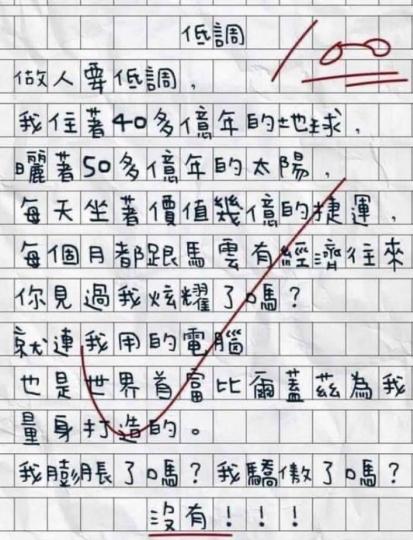 低調
100
做人要低調，
我住著40多億年的地球，
曬著50多億年的太陽，
每天坐著價值幾億的捷運，
每個月都跟馬雲有經濟往來
你見過我炫耀了嗎？
就連我用的電腦
也是世界首富比爾蓋茲為我
量身打造的。
我膨脹了嗎？我驕傲了嗎？
沒有！！！